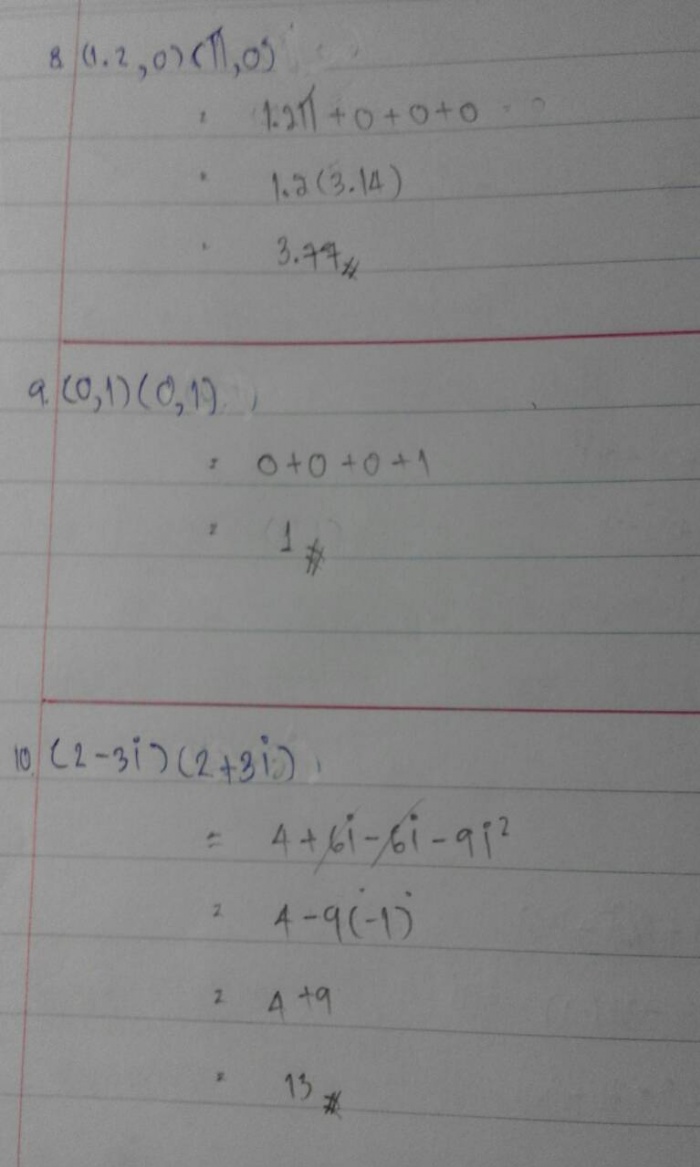 8. (1.2,0)(π,0)
= 1.2π+0+0+0
= 1.2(3.14)
= 3.77#
9. (0,1)(0,1)
= 0+0+0+1
= 1#
10. (2-3i)(2+3i)
= 4+6i-6i-9i²
= 4-9(-1)
= 4+9
= 13#